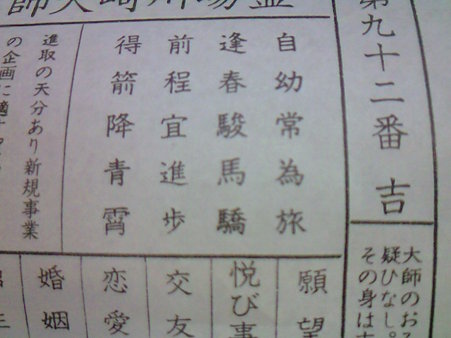 霊場川崎大師
第九十二番 吉
自幼常為旅
逢春駿馬驕
前程宜進歩
得箭降青霄
進取の天分あり新規事業
の企画に適
大師のお
疑ひなし。
その身は
願望
悦び事
交友
恋愛
婚姻